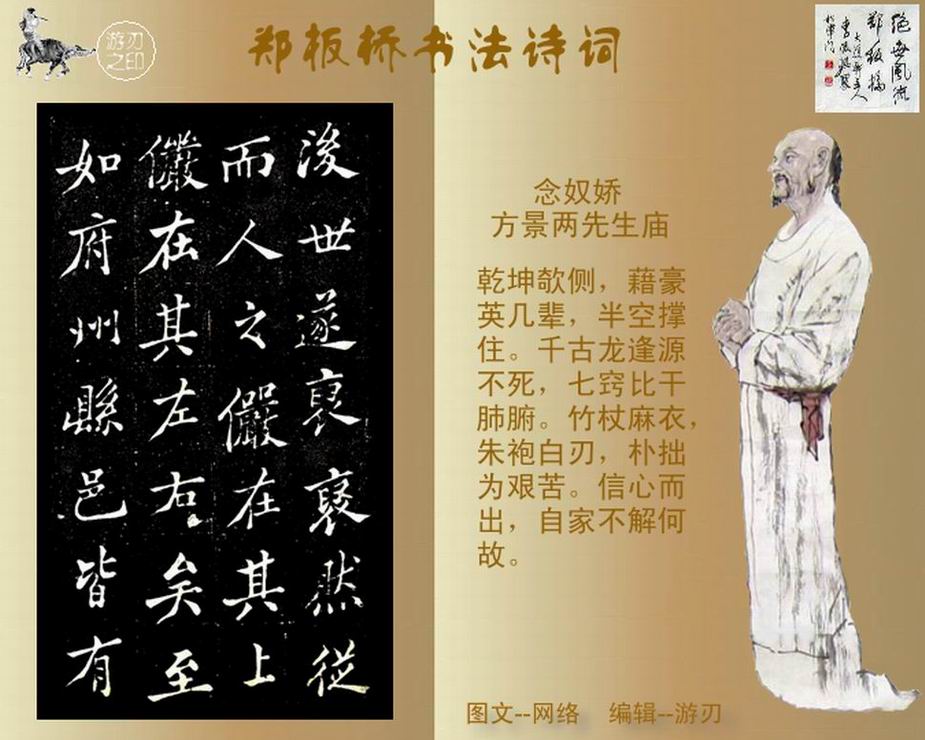 游刃
之印
郑板桥书法诗词
绝世風流
郑板橋
後世遂裒裒然從
而人之儼在其上
儼在其左右矣至
如府州縣邑皆有
念奴娇
方景两先生庙
乾坤欹侧，藉豪
英几辈，半空撑
住。千古龙逢源
不死，七窍比干
肺腑。竹杖麻衣，
朱袍白刃，朴拙
为艰苦。信心而
出，自家不解何
故。
图文--网络 编辑--游刃